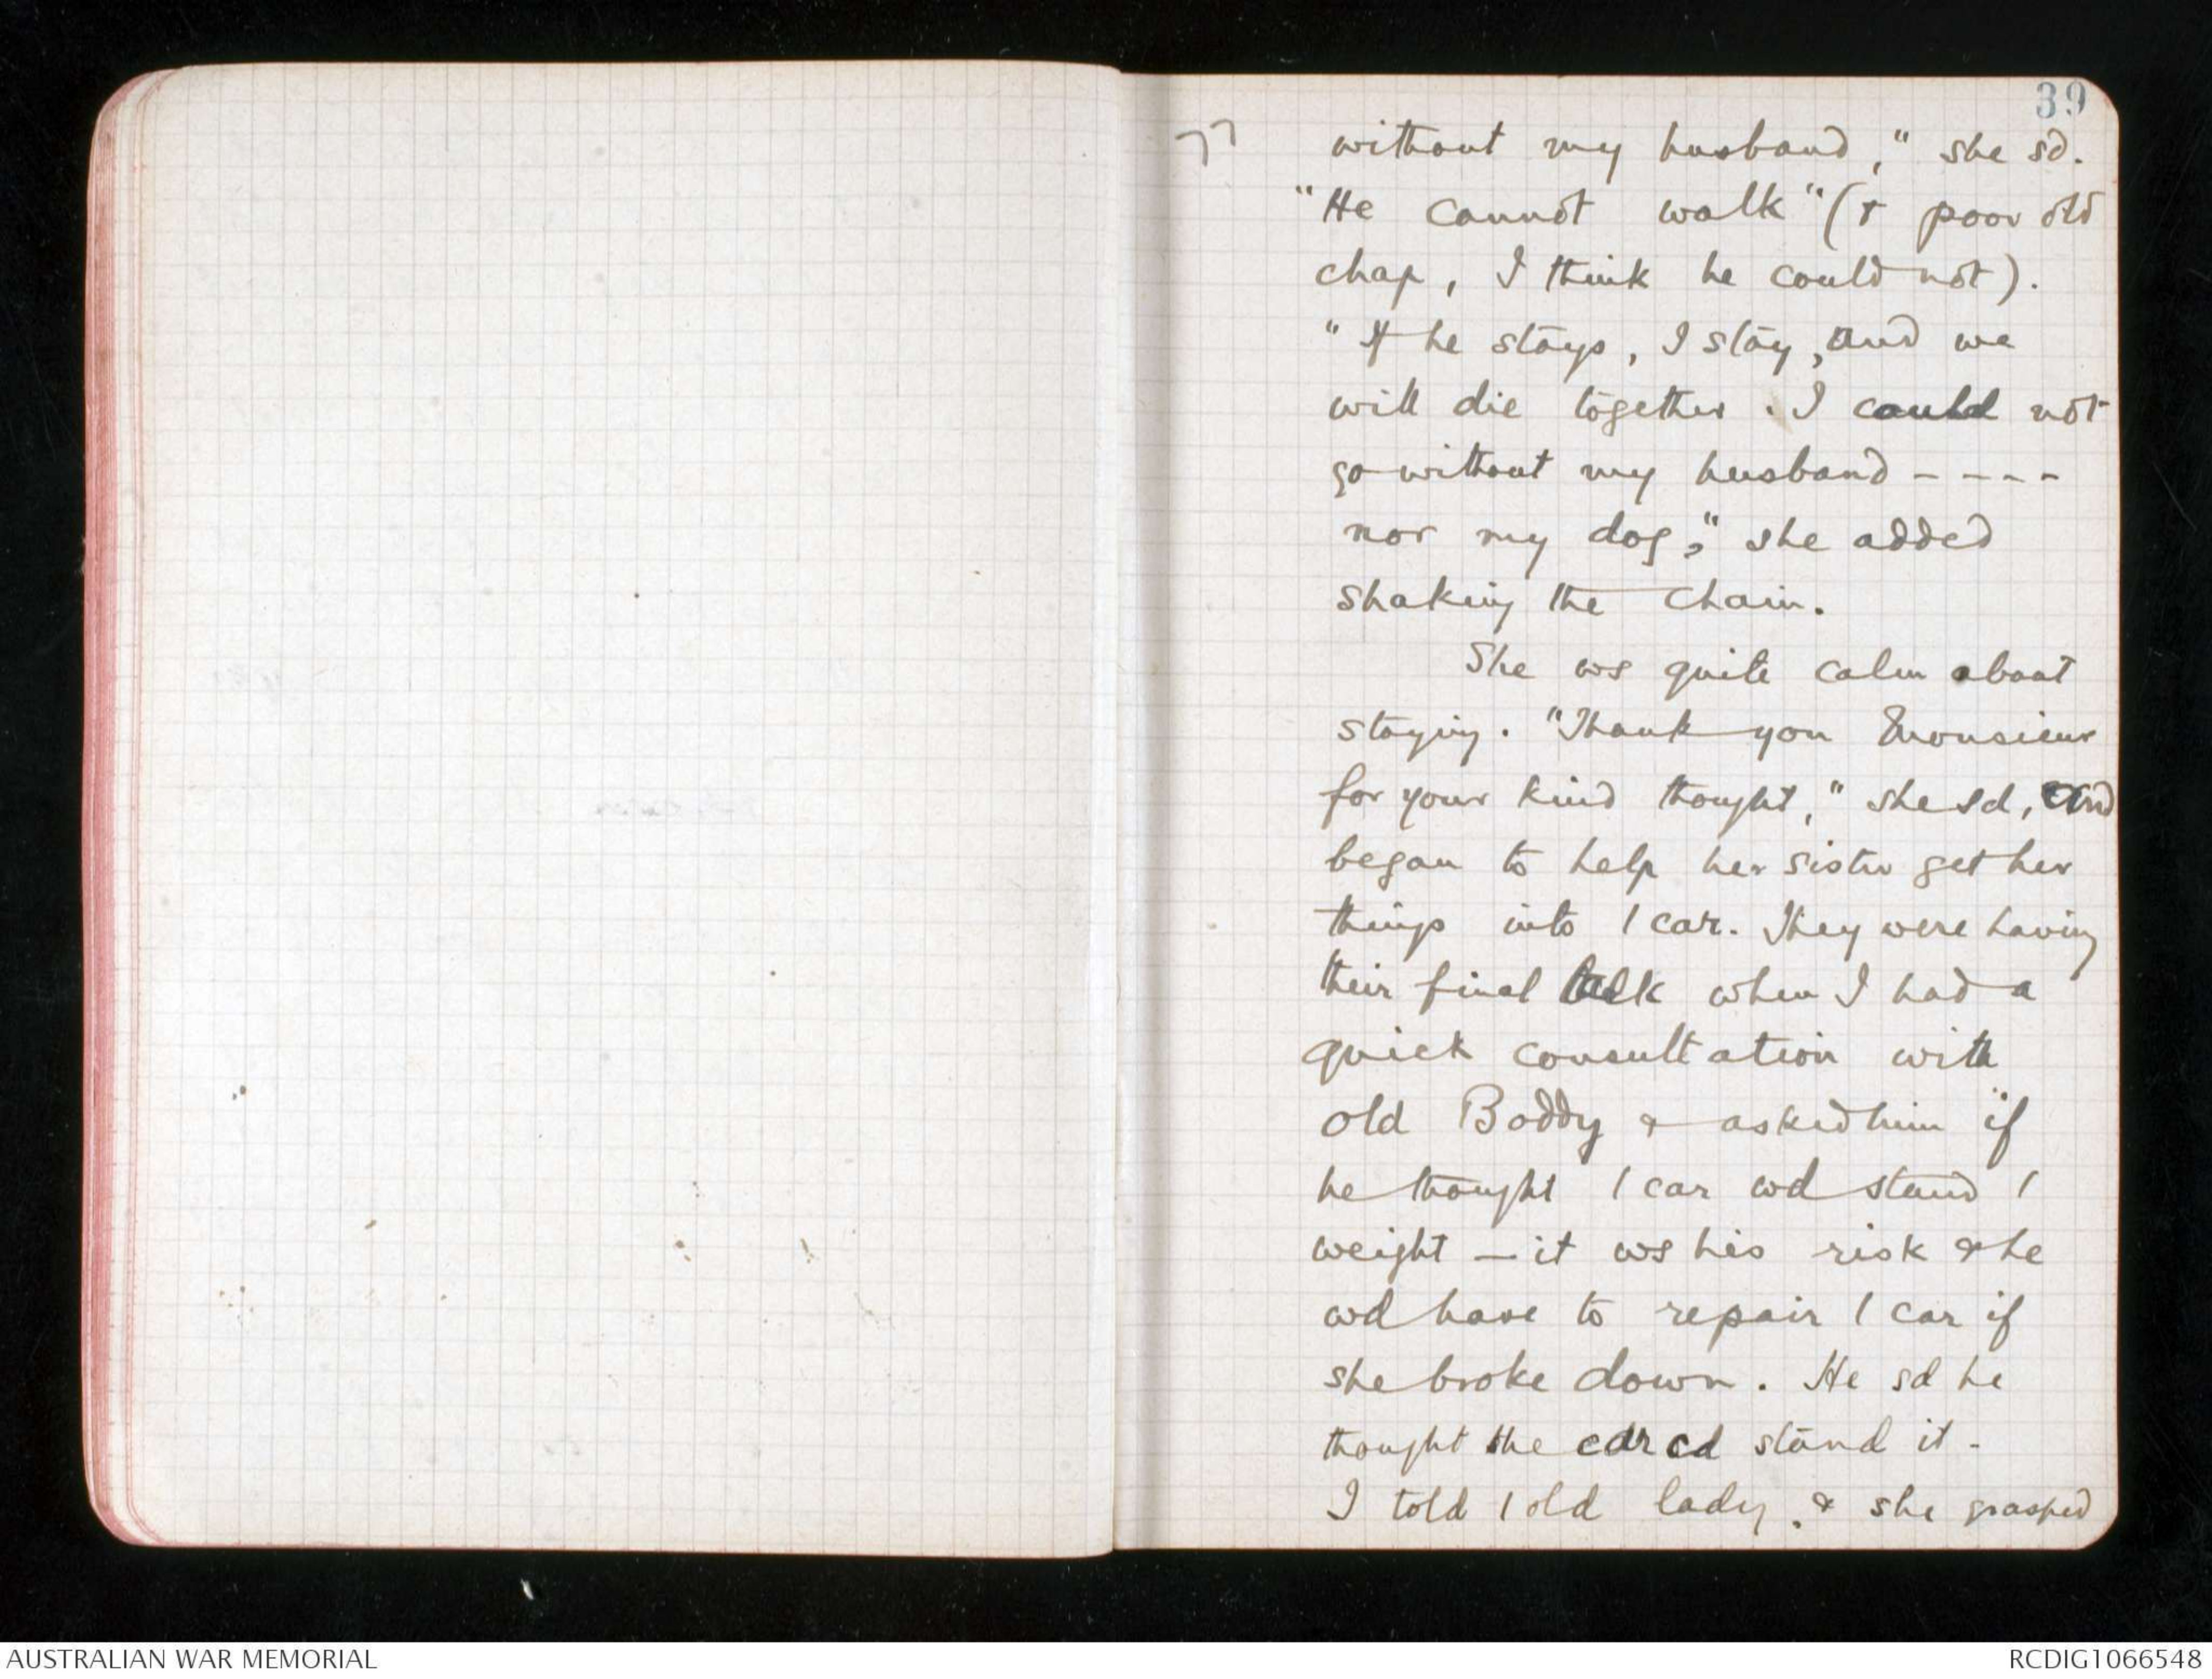 39
77
without my husband," she sd.
"He cannot walk" (& poor old
chap, I think he could not).
"If he stays, I stay, and we
will die together. I could not
go without my husband - - - -
nor my dog," she added
shaking the chain.
She ws quite calm about
staying. "Thank you Monsieur
for your kind thought," she sd, and
began to help her sister get her
things into / car. They were having
their final talk when I had a
quick consultation with
old Boddy & asked him if
he thought / car wd stand /
weight — it ws his risk & he
wd have to repair / car if
she broke down. He sd he
thought the car cd stand it -
I told / old lady, & she grasped
AUSTRALIAN WAR MEMORIAL
RCDIG1066548